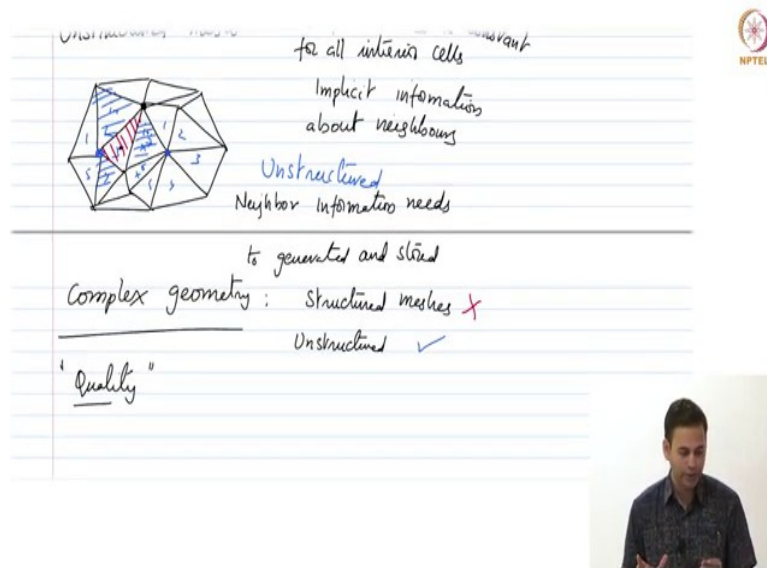 Unstructured mesh is constant
for all interior cells
Implicit information
about neighbours
Unstructured
Neighbor information needs
to generated and stored
Complex geometry : Structured meshes X
Unstructured ✓
"Quality"
1
2
1
2
3
5
NPTEL